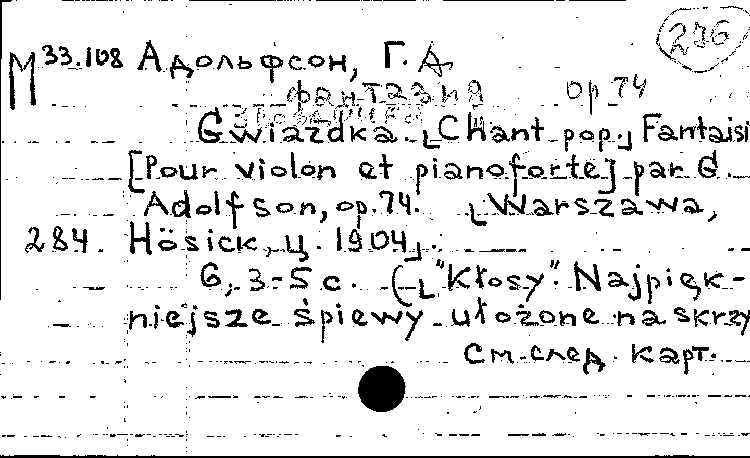 236
М 33.108 Адольфсон, Г. А.
фантазия ор 74
Звездочка
Gwiazdka. ⌊Chant pop.⌋ Fantaisi
[Pour violon et pianoforte] par G.
Adolfson, op. 74. ⌊Warszawa,
284. Hösick, ц. 1904⌋.
6, 3-5 с. (⌊"Kłosy". Najpięk-
niejsze śpiewy ułożone na skrzy
См. след. карт.